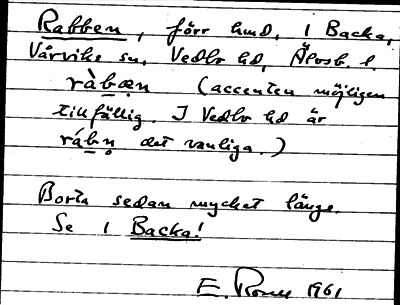 Rabben, förr lhd, i Backa,
Vårviks sn, Vedbo hd, Älvsb. l.
ràbæn (accenten möjligen
tillfällig. I Vedbo hd är
rábṇ det vanliga.)
Borta sedan mycket länge.
Se i Backa!
E. 1961